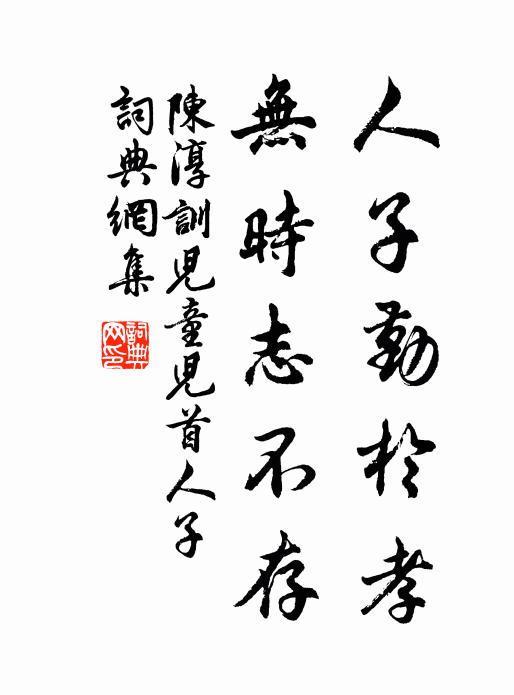 人子勤於孝
無時志不存
陳淳訓児童児首人子
詞典網集
詞典网印